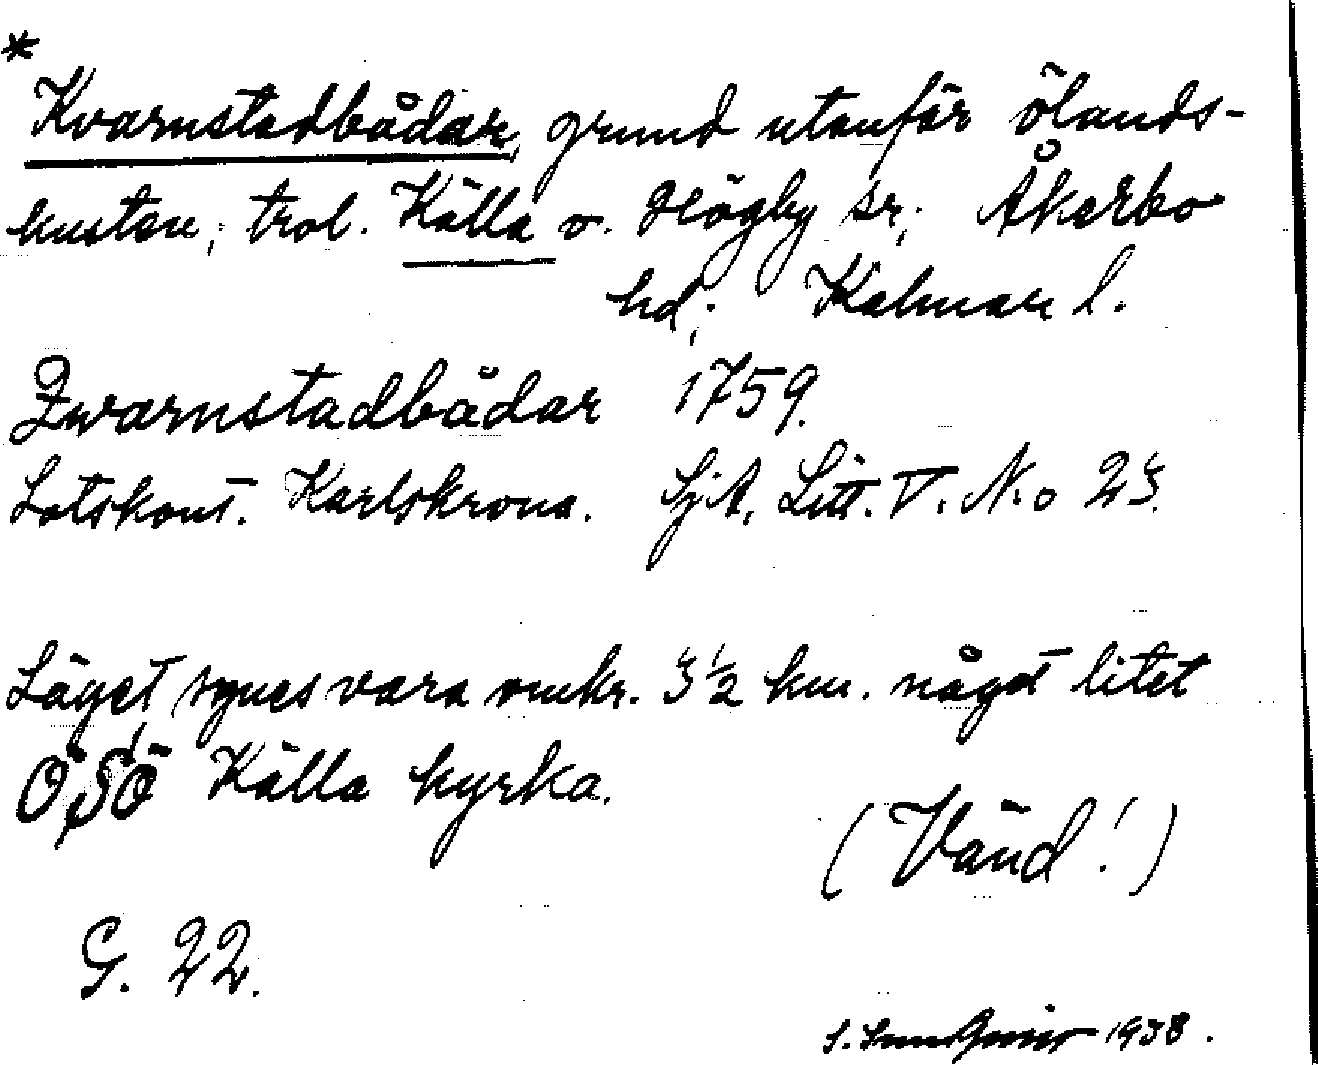 *
Kvarnstadbådar, grund utanför Ölands-
kusten, trol. Källa o. Högby sr, Åkerbo
hd, Kalmar l.
Qwarnstadbådar 1759.
Lotskont. Karlskrona. SjA, Litt. V. N:o 23.
Läget synes vara omkr. 3 1/2 km. något litet
OSO Källa kyrka.
(Vänd!)
G. 22.
S. 1938.